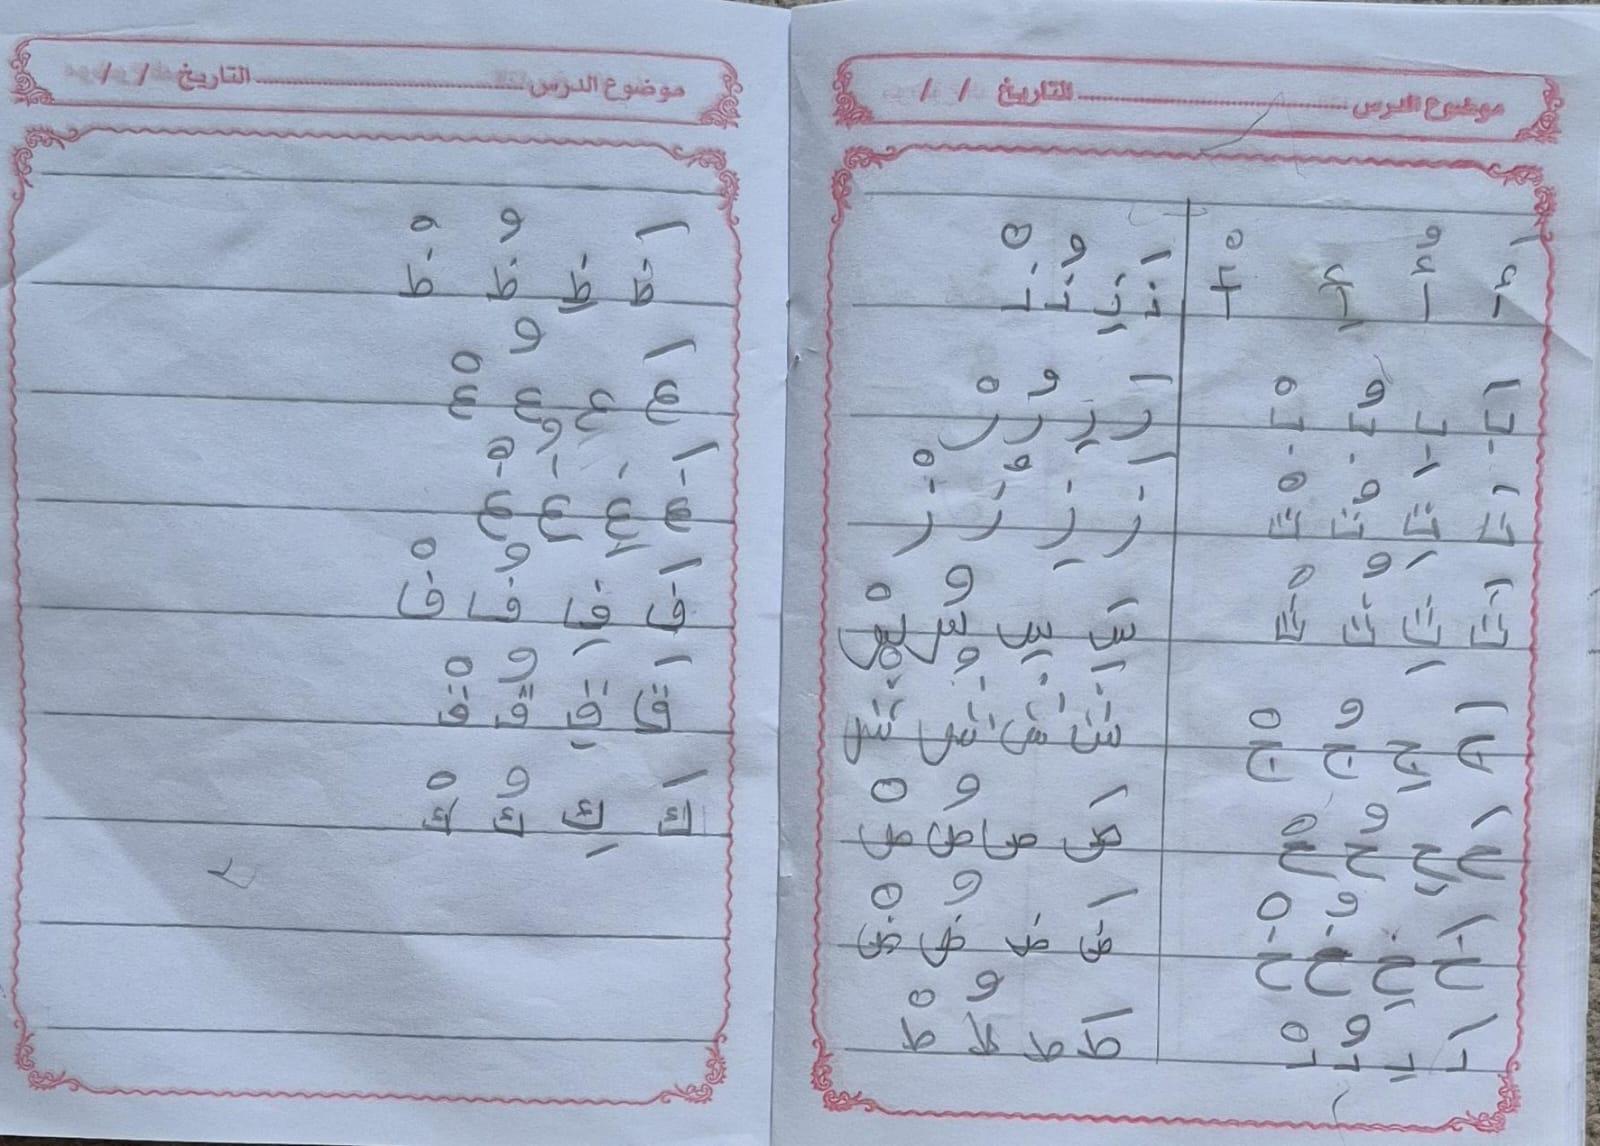 موضوع الدرس ........ التاريخ / /
أَ أُ إِ أْ
بَ بِ بُ بْ
تَ تِ تُ تْ
ثَ ثِ ثُ ثْ
جَ جِ جُ جْ
حَ حِ حُ حْ
خَ خِ خُ خْ
دَ دِ دُ دْ
ذَ ذِ ذُ ذْ
رَ رِ رُ رْ
زَ زِ زُ زْ
سَ سِ سُ سْ
شَ شِ شُ شْ
صَ ص صُ صْ
ضَ ض ضُ ضْ
طَ ط طُ طْ
موضوع الدرس ........ التاريخ / /
ظَ ظِ ظُ ظْ
عَ ع عُ عْ
غَ غِ غُ غْ
فَ فِ فُ فْ
قَ قِ قُ قْ
كَ كِ كُ كْ